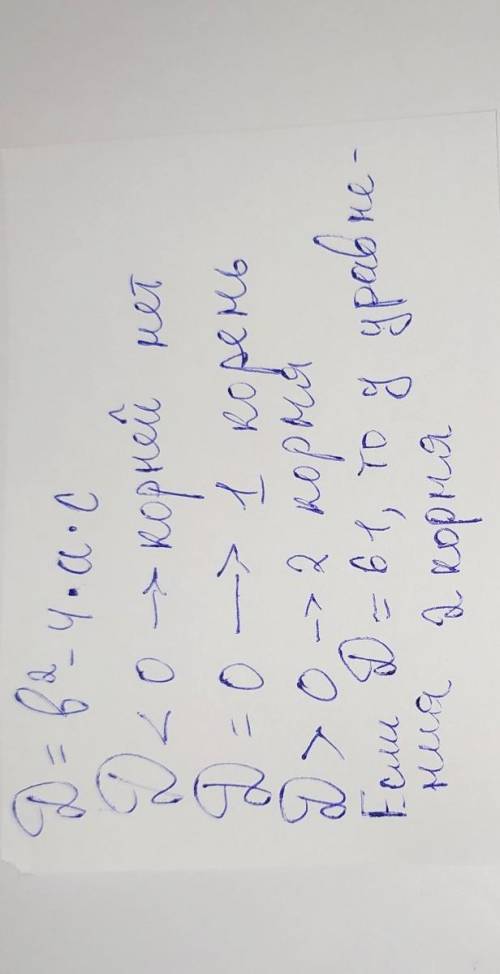 D = b² - 4·a·c
D < 0 → корней нет
D = 0 → 1 корень
D > 0 → 2 корня
Если D = 61, то у уравне-
ния 2 корня